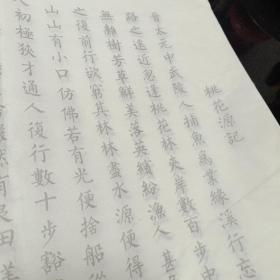 桃花源記
晉太元中武陵人捕魚爲業緣溪行忘
路之遠近忽逢桃花林夾岸數百步中
無雜樹芳草鮮美落英繽紛漁人甚
之復前行欲窮其林林盡水源便得
山山有小口仿佛若有光便捨船從
入初極狹才通人復行數十步豁
然有良田美